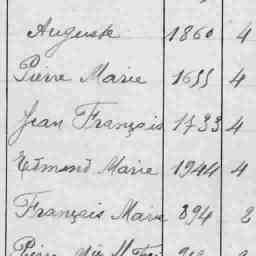 Auguste 1860 4
Pierre Marie 1655 4
Jean François 1733 4
Edmond Marie 1944 4
François Marie 894 2
Pierre